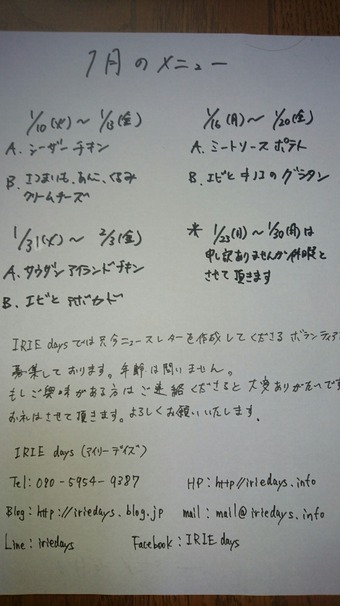 1月のメニュー
1/10(火)～1/13(金)
A. シーザーチキン
B. さつまいも、あんこ、くるみ
クリームチーズ
1/16(月)～1/20(金)
A. ミートソースポテト
B. エビとキノコのグラタン
1/31(火)～2/3(金)
A. サウザンアイランドチキン
B. エビとアボカド
* 1/23(月)～1/30(月)は
申し訳ありませんが休暇と
させて頂きます
IRIE daysでは只今ニュースレターを作成してくださるボランティア
募集しております。年齢は問いません。
もしご興味がある方はご連絡くださると大変ありがたいです
お礼はさせて頂きます。よろしくお願いいたします。
IRIE days (アイリーデイズ)
Tel: 080-5954-9387
HP: http://iriedays.info
Blog: http://iriedays.blog.jp
mail: mail@iriedays.info
Line: iriedays
Facebook: IRIE days